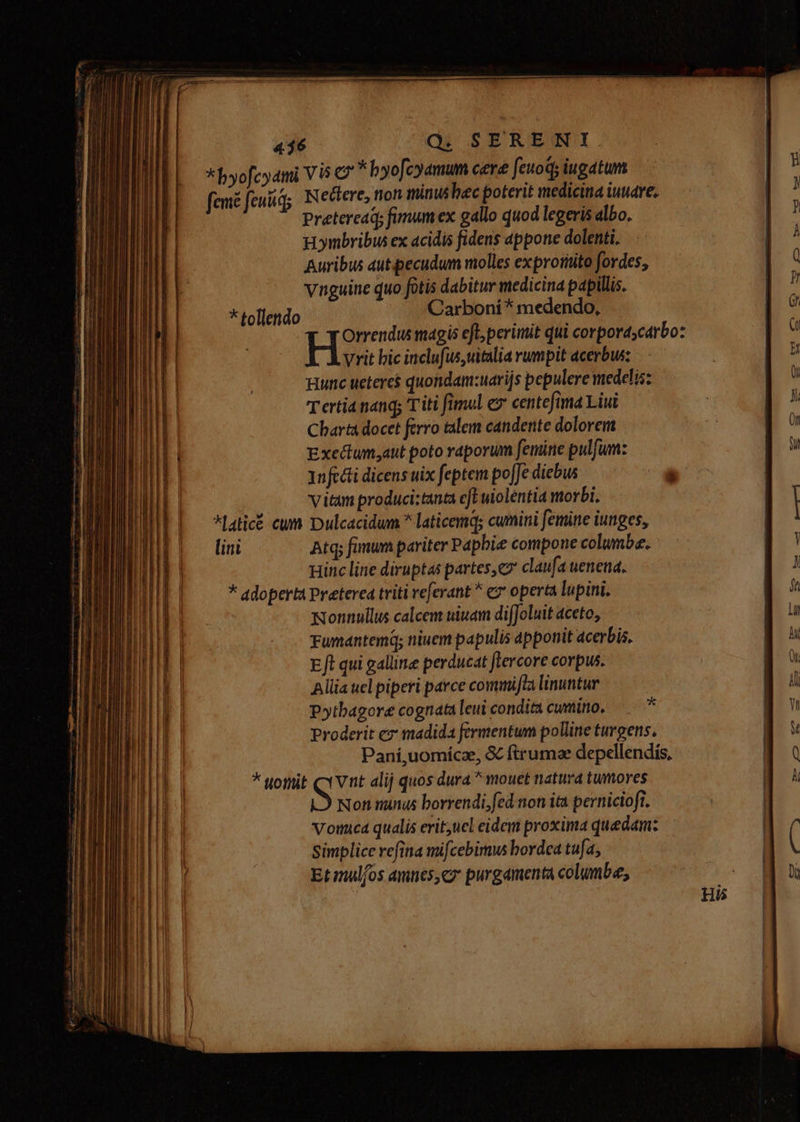 436 Q. SERENI
*hyoſcyami Vis &amp; * hyoſcyamum ceræ ſeuoq́; iugatum
ſemẽ ſeuũq́; Nectere, non minus hæc poterit medicina iuuare.
Prætereaq́; fimum ex gallo quod legeris albo,
Hymbribus ex acidis fidens appone dolenti.
Auribus aut pecudum molles expromito ſordes,
Vnguine quo fotis dabitur medicina papillis.
*tollendo Carboni * medendo,
HOrrendus magis eſt, perimit qui corpora, carbo:
Vrit hic incluſus, uitalia rumpit acerbus:
Hunc ueteres quondam: uarijs pepulere medelis:
Tertia nanq; Titi ſimul &amp; centeſima Liui
Charta docet ferro talem candente dolorem
Exectum, aut poto raporum ſemine pulſum:
Infecti dicens uix ſeptem poſſe diebus
Vitam produci: tanta eſt uiolentia morbi.
*laticẽ cum Dulcacidum * laticemq́; cumini ſemine iunges,
lini Atq; fimum pariter Paphiæ compone columbæ.
Hinc line diruptas partes, &amp; clauſa uenena.
* adoperta Præterea triti referant * &amp; operta lupini.
Nonnullus calcem uiuam diſſoluit aceto,
Fumantemq́; niuem papulis apponit acerbis.
Eſt qui gallinæ perducat ſtercore corpus.
Allia uel piperi parce commiſta linuntur
Pythagoræ cognata leui condita cumino. *
Proderit &amp; madida fermentum polline turgens.
Pani, uomicæ, &amp; ſtrumæ depellendis.
* uomit SVnt alij quos dura * mouet natura tumores
Non minus horrendi, ſed non ita pernicioſi.
Vomica qualis erit, uel eidem proxima quædam:
Simplice reſina miſcebimus hordea tuſa,
Et mulſos amnes, &amp; purgamenta columbæ,
His